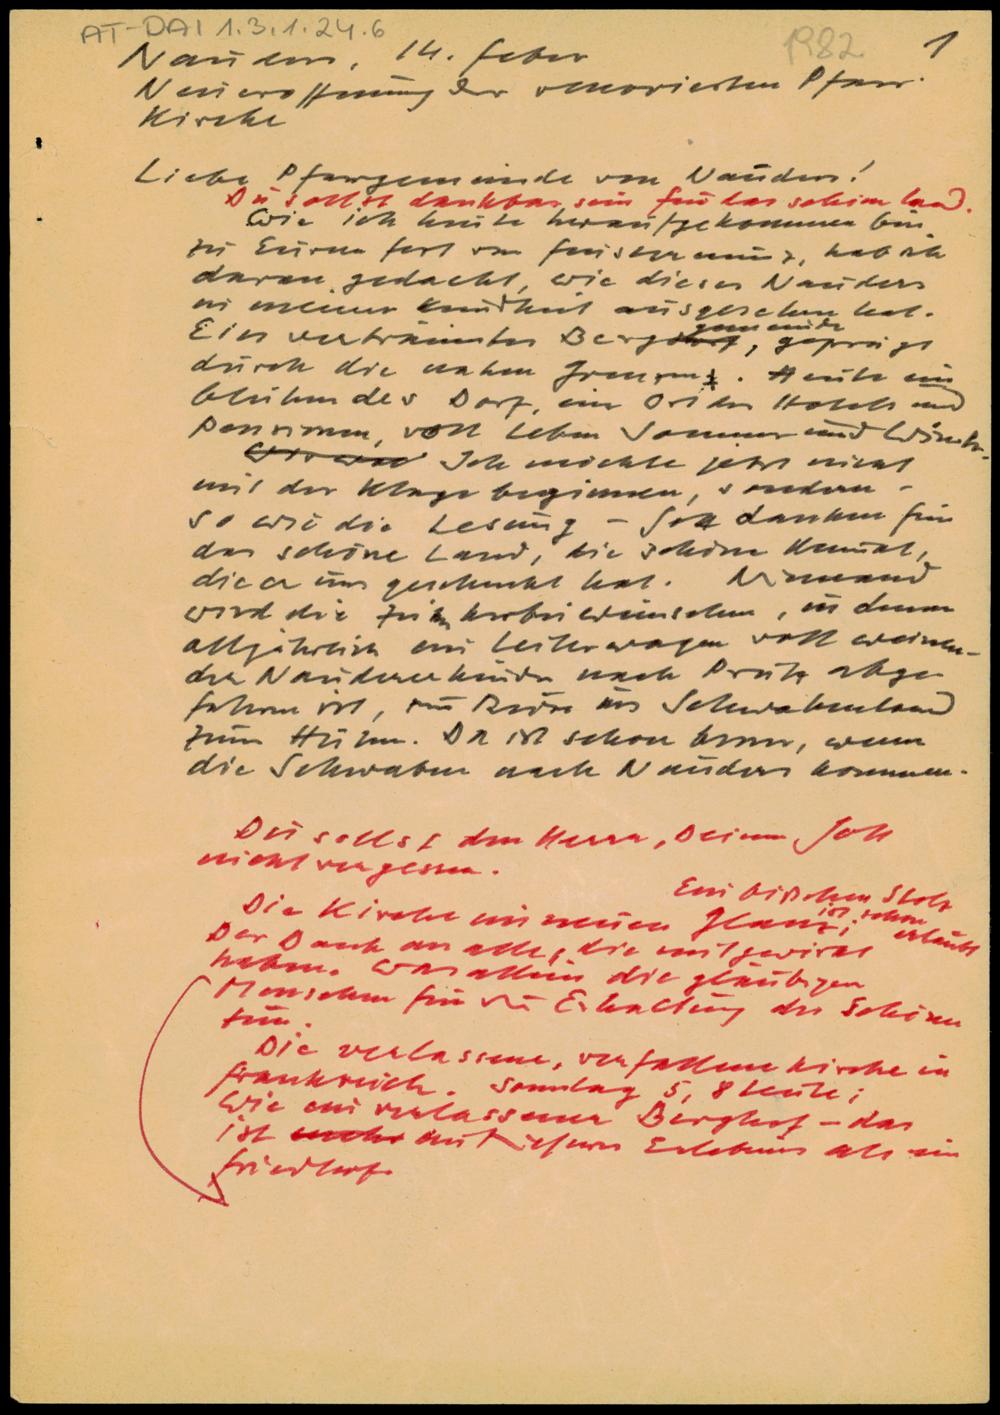 AT-DAI 1.3.1.24.6
1982
1
Nauders, 14. Feber
Neueröffnung der renovierten Pfarr-
Kirche
Liebe Pfarrgemeinde von Nauders!
Du sollst dankbar sein für das schöne Land.
Wie ich heute heraufgekommen bin
zu Eurem Fest von Finstermünz, hab ich
daran gedacht, wie dieses Nauders
in meiner Kindheit ausgesehen hat.
gemeinde
Ein verträumtes Bergdorf, geprägt
durch die nahen Grenzen. Heute ein
blühendes Dorf, ein Ort der Hotels und
Pensionen, voll Leben Sommer und Winter.
Ich möchte jetzt nicht
mit der Klage beginnen, sondern -
so wie die Lesung - Gott danken für
das schöne Land, die schöne Heimat,
die er uns geschenkt hat. Niemand
wird die Zeit herbeiwünschen, in denen
alljährlich ein Leiterwagen voll weinen-
der Nauderer kinder nach Prutz abge-
fahren ist, zur Reise ins Schwabenland
zum Hüten. Da ist schon besser, wenn
die Schwaben nach Nauders kommen.
Du sollst den Herrn, Deinen Gott
nicht vergessen.
Ein bißchen Stolz
ist schon
erlaubt
Die Kirche im neuen Glanz;
Der Dank an alle, die mitgewirkt
haben. Was allein die gläubigen
Menschen für die Erhaltung des Schönen
tun.
Die verlassene, verfallene Kirche in
Frankreich. Sonntag 5, 8 Leute;
Wie ein verlassener Berghof - das
ist mehr ein tieferes Erlebnis als ein
Friedhof.